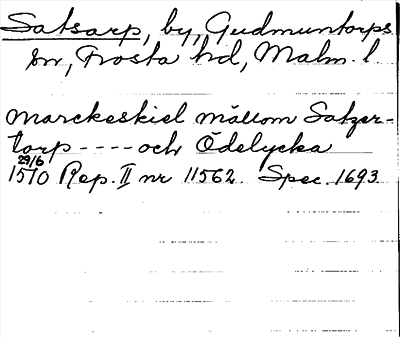 Satsarp, by, Gudmuntorps
sn, Frosta hd, Malm. l
Marckeskiel mällom Satzer-
torp ---- och Ödelycka
29/6
1570 Rep. II nr 11562. Spec. 1693